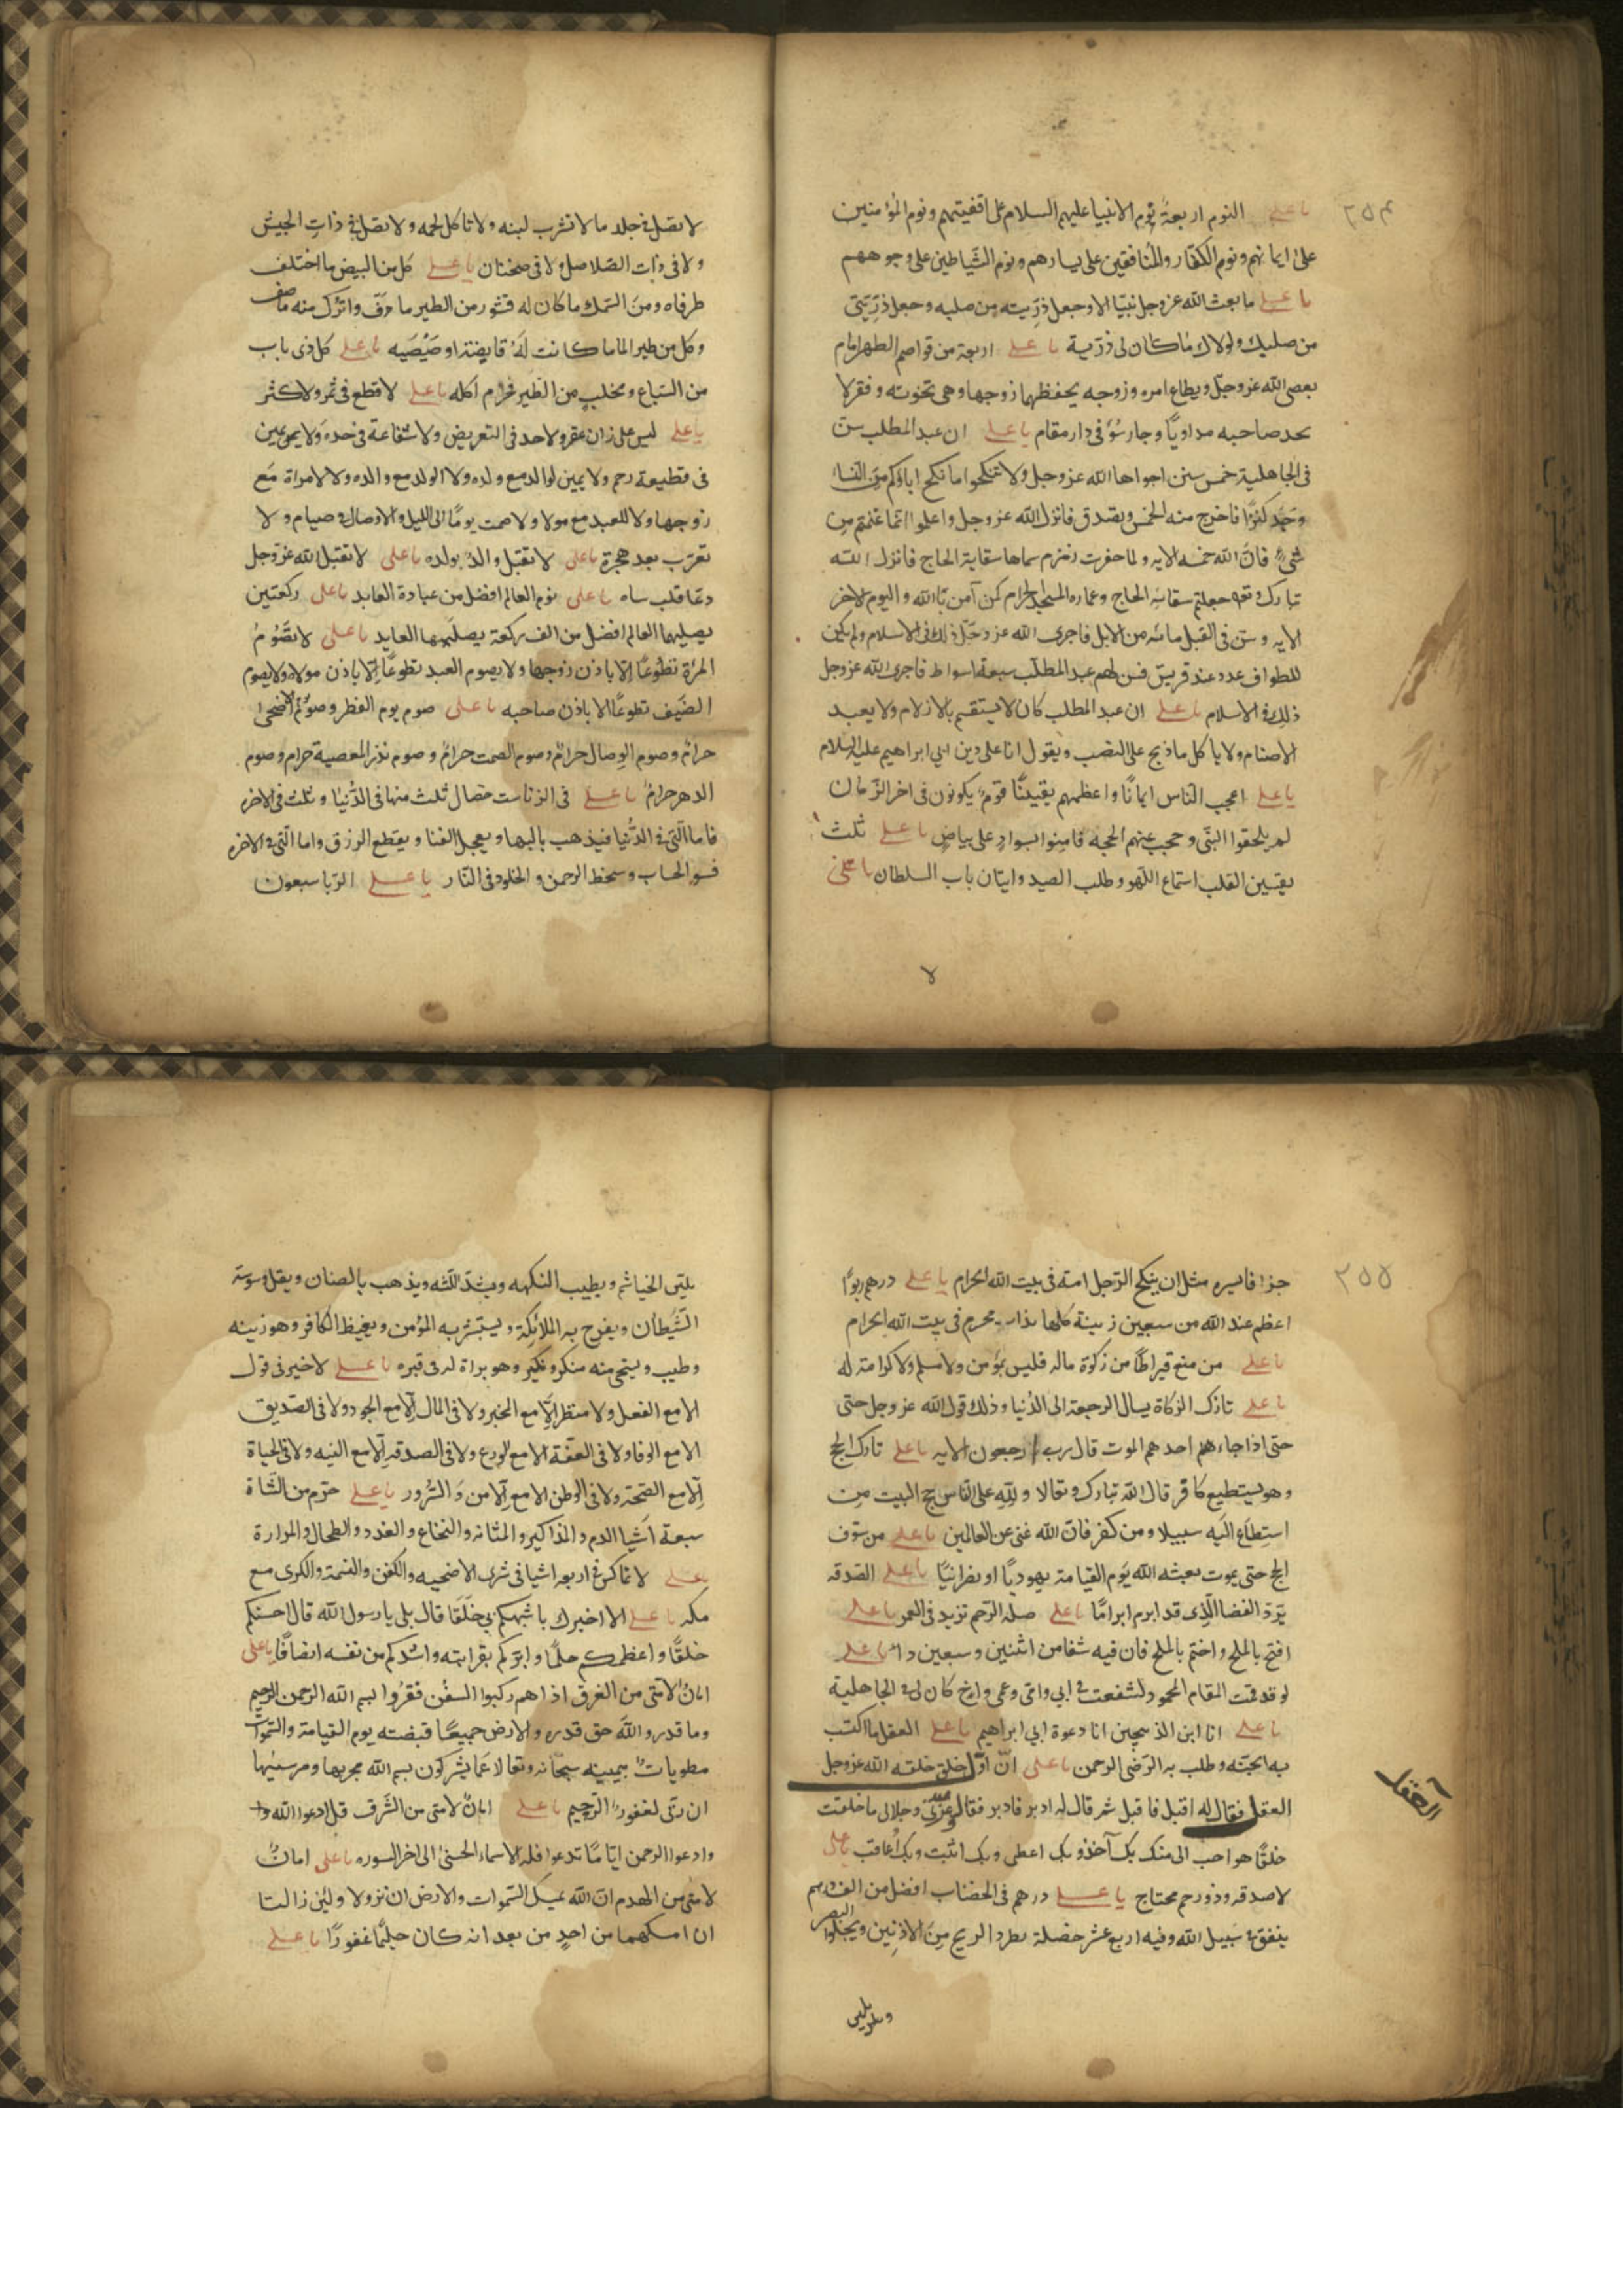 ٣٥٤
يا علي النوم اربعة نوم الانبيا عليهم السلام على اقفيتهم ونوم المؤمنين
على ايمانهم ونوم الكفار والمنافقين على يسارهم ونوم الشياطين على وجوههم
يا علي ما بعث الله عز وجل نبيا الا وجعل ذريته من صلبه وجعل ذريتى
من صلبك ولولاك ما كان لى ذرية يا علي اربعة من قواصم الظهر امام
يعصى الله عز وجل ويطاع امره وزوجه يحفظها زوجها وهى تخونه وفقر لا
يجد صاحبه مداويا وجار سؤ فى دار مقام يا علي ان عبد المطلب سن
فى الجاهلية خمس سنن اجراها الله عز وجل ولا تنكحوا ما نكح اباؤكم من النسا
وجد كنزا فاخرج منه الخمس وتصدق فانزل الله عز وجل واعلموا انما غنمتم من
شئ فان الله خمسه الايه ولما حفرت زمزم سماها سقاية الحاج فانزل الله
تبارك وتعه اجعلتم سقايه الحاج وعماره المسجد الحرام كمن آمن بالله واليوم الاخر
الايه وسن فى القتل مائه من الابل فاجرى الله عز وجل ذلك فى الاسلام ولم يكن
للطواف عدد عند قريش فسن لهم عبد المطلب سبعة اسواط فاجرى الله عز وجل
ذلك فى الاسلام يا علي ان عبد المطلب كان لا يستقسم بالازلام ولا يعبد
الاصنام ولا ياكل ما ذبح على النصب ويقول انا على دين ابي ابراهيم عليه السلام
يا علي اعجب الناس ايمانا واعظمهم يقينا قوم يكونون فى اخر الزمان
لم يلحقوا النبى وحجب عنهم الحجه فامنوا بسواد على بياض يا علي ثلث
يقسين القلب استماع اللهو وطلب الصيد واتيان باب السلطان يا على
لا
لا تصل فى جلد ما لا تشرب لبنه ولا تاكل لحمه ولا تصل فى ذات الجيش
ولا فى ذات الصلاصل ولا فى ضجنان يا علي كل من البيض ما اختلف
طرفاه ومن السمك ما كان له قشور من الطير ما دف واترك منه ما صف
وكل من طير الما ما كانت له قانصة او صيصيه يا علي كل ذى ناب
من السباع ومخلب من الطير فحرام اكله يا علي لا قطع فى ثمر ولا كثر
يا علي ليس على زان عقر ولا حد فى التعريض ولا شفاعة فى حد ولا يمين
فى قطيعة رحم ولا يمين لوالد مع ولده ولا الولد مع والده ولا لامراة مع
زوجها ولا للعبد مع مولاه ولا صمت يوما الى الليل ولا وصال فى صيام ولا
تعرب بعد هجرة يا على لا يقتل والد بولده يا على لا تقبل الله عز وجل
دعا قلب ساه يا على نوم العالم افضل من عبادة العابد يا على ركعتين
يصليهما العالم افضل من الف ركعة يصليهما العابد يا على لا تصوم
المرأة تطوعا الا باذن زوجها ولا يصوم العبد تطوعا الا باذن مولاه ولا يصوم
الضيف تطوعا الا باذن صاحبه يا على صوم يوم الفطر وصوم الاضحى
حرام وصوم الوصال حرام وصوم الصمت حرام وصوم نذر المعصية حرام وصوم
الدهر حرام يا علي فى الزنا ست خصال ثلث منها فى الدنيا وثلث فى الاخره
فاما التى فى الدنيا فيذهب بالبها ويعجل الفنا ويقطع الرزق واما التى فى الاخره
فسو الحساب وسخط الرحمن والخلود فى النار يا علي الربا سبعون
٣٥٥
جزا فايسره مثل ان ينكح الرجل امه فى بيت الله الحرام يا علي درهم ربوا
اعظم عند الله من سبعين زينة كلها بذات محرم فى بيت الله الحرام
يا علي من منع قيراطا من زكوة ماله فليس بمؤمن ولا مسلم ولا كرامة له
يا علي تارك الزكاة يسال الرجعة الى الدنيا وذلك قول الله عز وجل حتى
حتى اذا جاء هم احدهم الموت قال رب ارجعون الايه يا علي تارك الحج
وهو يستطيع كافر قال الله تبارك وتعالا ولله على الناس حج البيت من
استطاع اليه سبيلا ومن كفر فان الله غنى عن العالمين يا علي من سوف
الحج حتى يموت بعثه الله يوم القيامة يهوديا او نصرانيا يا علي الصدقه
يرد القضا الذى قد ابرم ابراما يا علي صله الرحم تزيد فى العمر يا علي
افتح بالملح واختم بالملح فان فيه شفا من اثنين وسبعين دا يا علي
لو قد قمت المقام المحمود لشفعت فى ابي وامى وعمى واخ كان لى فى الجاهلية
يا علي انا ابن الذبيحين انا دعوة ابي ابراهيم يا علي العقل ما اكتسب
به الجنه وطلب به الرضى الرحمن يا على ان اول خلق خلقه الله عز وجل
العقل فقال له اقبل فاقبل ثم قال له ادبر فادبر فقال وعزتى وجلالى ما خلقت
خلقا هو احب الى منك بك آخذ وبك اعطى وبك اثبت وبك اعاقب يا على
لا صدقه وذو رحم محتاج يا علي درهم فى الخضاب افضل من الف درهم
ينفق فى سبيل الله وفيه اربع عشر خصلة يطرد الريح من الاذنين ويجلوا البصر
العقل
ويلين
يلين الخياشم ويطيب النكهه ويشد اللثه ويذهب بالصنان ويقل وسوسة
الشيطان ويفرح به الملائكة ويستبشر به المؤمن ويغيظ الكافر وهو زينه
وطيب ويستحى منه منكر ونكير وهو براة له فى قبره يا علي لا خير فى قول
الا مع الفعل ولا منظر الا مع الخبر ولا فى المال الا مع الجود ولا فى الصديق
الا مع الوفا ولا فى العفة الا مع الورع ولا فى الصدقه الا مع النيه ولا فى الحياة
الا مع الصحة ولا فى الوطن الا مع الامن والسرور يا علي حرم من الشاة
سبعة اشيا الدم والمذاكير والمثانه والنخاع والغدد والطحال والمرارة
يا علي لا تماكس فى اربعه اشيا فى شرى الاضحيه والكفن والنسمة والكرى مع
مكه يا علي الا اخبرك باشبهكم بي خلقا قال بلى يا رسول الله قال احسنكم
خلقا واعظمكم حلما وابركم بقرابته واشدكم من نفسه انصافا يا على
امان لامتى من الغرق اذا هم ركبوا السفن فقرؤا بسم الله الرحمن الرحيم
وما قدروا الله حق قدره والارض جميعا قبضته يوم القيامة والسموات
مطويات بيمينه سبحانه وتعالا عما يشركون بسم الله مجريها ومرسيها
ان ربى لغفور الرحيم يا علي امان لامتى من الشرق قل ادعوا الله وا
وادعوا الرحمن ايا ما تدعوا فله الاسماء الحسنى الى اخر السوره يا على امان
لامتى من الهدم ان الله يمسك السموات والارض ان تزولا ولئن زالتا
ان امسكهما من احد من بعد انه كان حليما غفورا يا علي